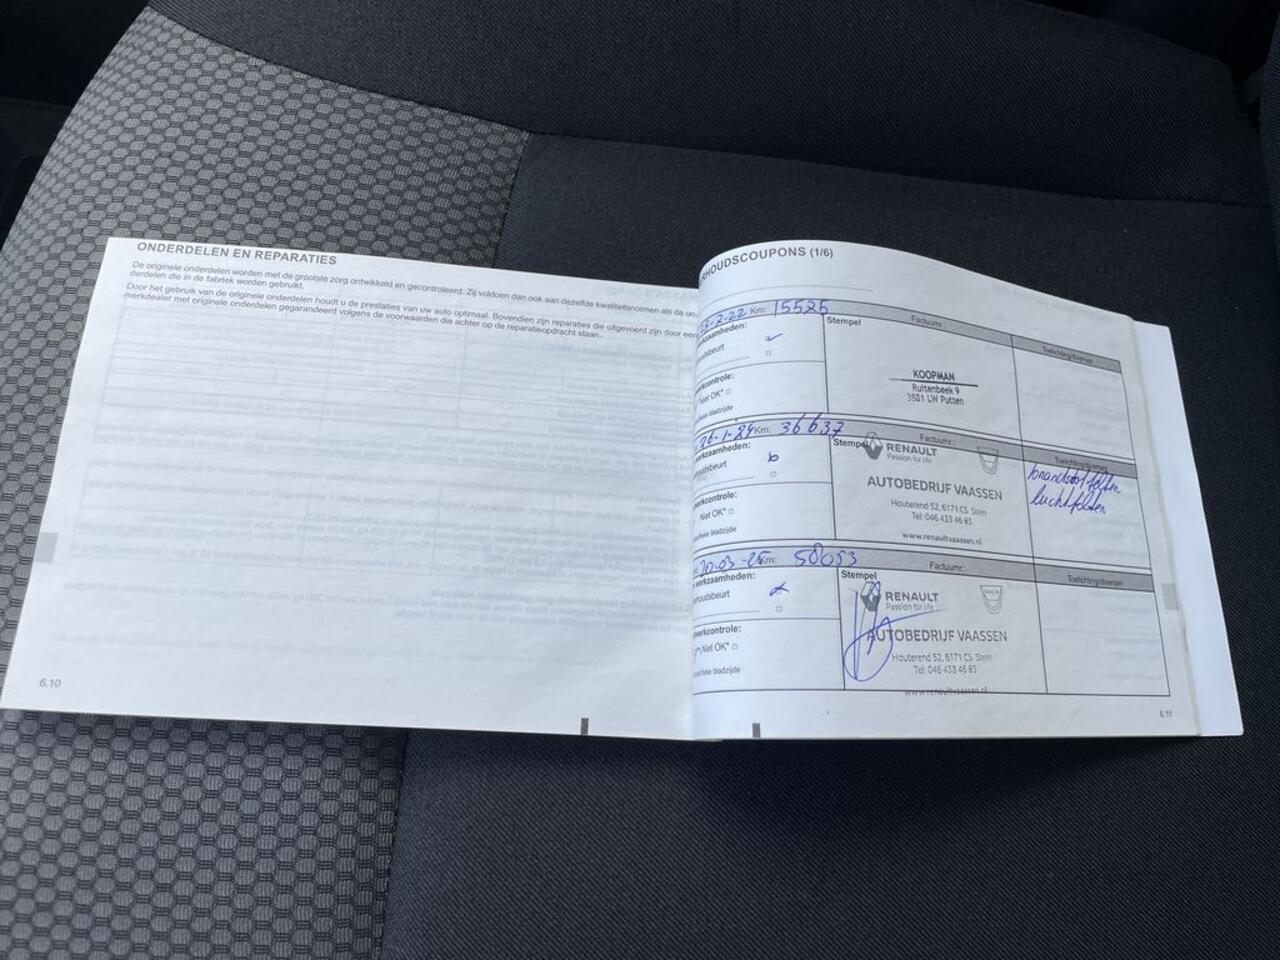 ONDERDELEN EN REPARATIES
De originele onderdelen worden met de grootste zorg ontwikkeld en gecontroleerd. Zij voldoen dan ook aan dezelfde kwaliteitsnormen als de on-
derdelen die in de fabriek worden gebruikt.
Door het gebruik van de originele onderdelen houdt u de prestaties van uw auto optimaal. Bovendien zijn reparaties die uitgevoerd zijn door een
merkdealer met originele onderdelen gegarandeerd volgens de voorwaarden die achter op de reparatieopdracht staan.
6.10
RHOUDSCOUPONS (1/6)
-2-22 Km: 15525
Factuurnr.:
Toelichting/diversen
rkzaamheden:
Stempel
oudsbeurt
KOOPMAN
Ruitenbeek 9
3881 LW Putten
rkcontrole:
Niet OK*
ifieke bladzijde
26-1-24 Km: 36637
Factuurnr.:
Toelichting/diversen
werkzaamheden:
Stempel
houdsbeurt
RENAULT
Passion for life
AUTOBEDRIJF VAASSEN
Houterend 52, 6171 CS Stein
Tel: 046 433 46 83
www.renaultvaassen.nl
brandstoffilter
luchtfilter
werkcontrole:
Niet OK*
ifieke bladzijde
20-03-25 Km: 58053
Factuurnr.:
Toelichting/diversen
werkzaamheden:
Stempel
rhoudsbeurt
RENAULT
Passion for life
DACIA
AUTOBEDRIJF VAASSEN
Houterend 52, 6171 CS Stein
Tel: 046 433 46 83
www.renaultvaassen.nl
werkcontrole:
Niet OK*
ecifieke bladzijde
6.11